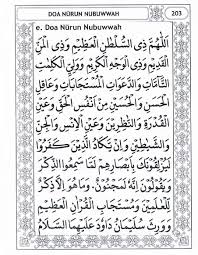 DOA NŪRUN NUBUWWAH
203
e. Doa Nūrun Nubuwwah
اَللّٰهُمَّ ذِى السُّلْطٰنِ الْعَظِيْمِ وَذِى الْمَنِّ
الْقَدِيْمِ وَذِى الْوَجْهِ الْكَرِيْمِ وَوَلِيِّ الْكَلِمٰتِ
التَّآمَّاتِ وَالدَّعَوَاتِ الْمُسْتَجَابَاتِ وَعَاقِلِ
الْحَسَنِ وَالْحُسَيْنِ مِنْ اَنْفُسِ الْحَقِّ وَعَيْنِ
الْقُدْرَةِ وَالنَّاظِرِيْنَ وَعَيْنِ الْاِنْسِ وَالْجِنِّ
وَالشَّيٰطِيْنِ وَاِنْ يَّكَادُ الَّذِيْنَ كَفَرُوْا
لَيُزْلِقُوْنَكَ بِاَبْصَارِهِمْ لَمَّا سَمِعُوا الذِّكْرَ
وَيَقُوْلُوْنَ اِنَّهٗ لَمَجْنُوْنٌ. وَمَا هُوَ اِلَّا ذِكْرٌ
لِّلْعٰلَمِيْنَ وَمُسْتَجَابُ الْقُرْاٰنِ الْعَظِيْمِ
وَوَرِثَ سُلَيْمَانُ دَاوٗدَ عَلَيْهِمَا السَّلَامُ